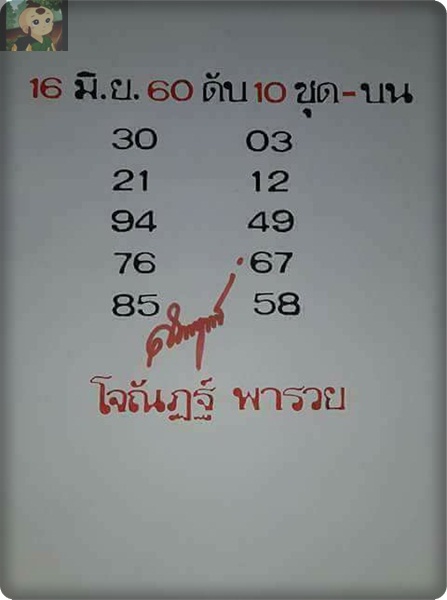 16 มิ.ย. 60 ดับ 10 ชุด-บน
30 03
21 12
94 49
76 67
85 58
โจณัฏฐ์ พารวย